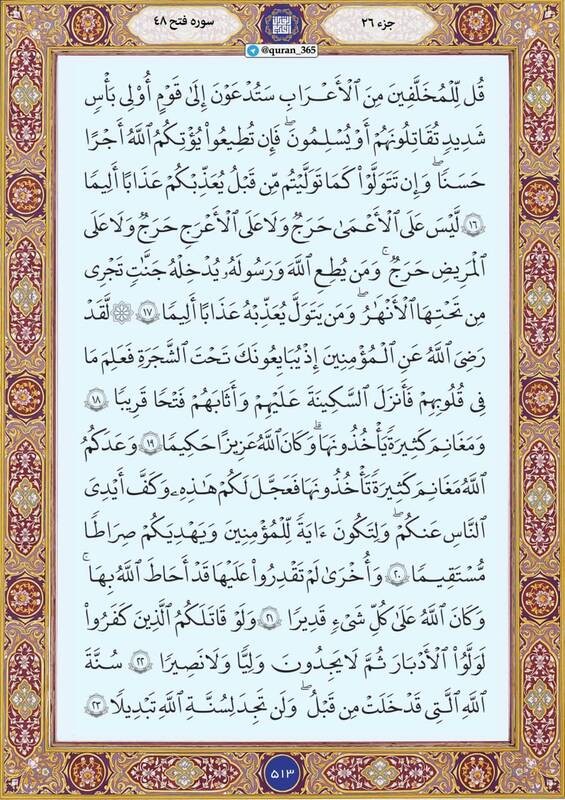 جزء ۲۶
سوره فتح ۴۸
@quran_365
قُل لِّلۡمُخَلَّفِينَ مِنَ ٱلۡأَعۡرَابِ سَتُدۡعَوۡنَ إِلَىٰ قَوۡمٍ أُوْلِي بَأۡسٖ
شَدِيدٖ تُقَٰتِلُونَهُمۡ أَوۡ يُسۡلِمُونَۖ فَإِن تُطِيعُواْ يُؤۡتِكُمُ ٱللَّهُ أَجۡرًا
حَسَنٗاۖ وَإِن تَتَوَلَّوۡاْ كَمَا تَوَلَّيۡتُم مِّن قَبۡلُ يُعَذِّبۡكُمۡ عَذَابًا أَلِيمٗا
۱۶ لَّيۡسَ عَلَى ٱلۡأَعۡمَىٰ حَرَجٞ وَلَا عَلَى ٱلۡأَعۡرَجِ حَرَجٞ وَلَا عَلَى
ٱلۡمَرِيضِ حَرَجٞۗ وَمَن يُطِعِ ٱللَّهَ وَرَسُولَهُۥ يُدۡخِلۡهُ جَنَّٰتٖ تَجۡرِي
مِن تَحۡتِهَا ٱلۡأَنۡهَٰرُۖ وَمَن يَتَوَلَّ يُعَذِّبۡهُ عَذَابًا أَلِيمٗا ۱۷ ۞ لَّقَدۡ
رَضِيَ ٱللَّهُ عَنِ ٱلۡمُؤۡمِنِينَ إِذۡ يُبَايِعُونَكَ تَحۡتَ ٱلشَّجَرَةِ فَعَلِمَ مَا
فِي قُلُوبِهِمۡ فَأَنزَلَ ٱلسَّكِينَةَ عَلَيۡهِمۡ وَأَثَٰبَهُمۡ فَتۡحٗا قَرِيبٗا ۱۸
وَمَغَانِمَ كَثِيرَةٗ يَأۡخُذُونَهَاۗ وَكَانَ ٱللَّهُ عَزِيزًا حَكِيمٗا ۱۹ وَعَدَكُمُ
ٱللَّهُ مَغَانِمَ كَثِيرَةٗ تَأۡخُذُونَهَا فَعَجَّلَ لَكُمۡ هَٰذِهِۦ وَكَفَّ أَيۡدِيَ
ٱلنَّاسِ عَنكُمۡۖ وَلِتَكُونَ ءَايَةٗ لِّلۡمُؤۡمِنِينَ وَيَهۡدِيَكُمۡ صِرَٰطٗا
مُّسۡتَقِيمٗا ۲۰ وَأُخۡرَىٰ لَمۡ تَقۡدِرُواْ عَلَيۡهَا قَدۡ أَحَاطَ ٱللَّهُ بِهَاۚ
وَكَانَ ٱللَّهُ عَلَىٰ كُلِّ شَيۡءٖ قَدِيرٗا ۲۱ وَلَوۡ قَٰتَلَكُمُ ٱلَّذِينَ كَفَرُواْ
لَوَلَّوُاْ ٱلۡأَدۡبَٰرَ ثُمَّ لَا يَجِدُونَ وَلِيّٗا وَلَا نَصِيرٗا ۲۲ سُنَّةَ
ٱللَّهِ ٱلَّتِي قَدۡ خَلَتۡ مِن قَبۡلُۖ وَلَن تَجِدَ لِسُنَّةِ ٱللَّهِ تَبۡدِيلٗا ۲۳
۵۱۳